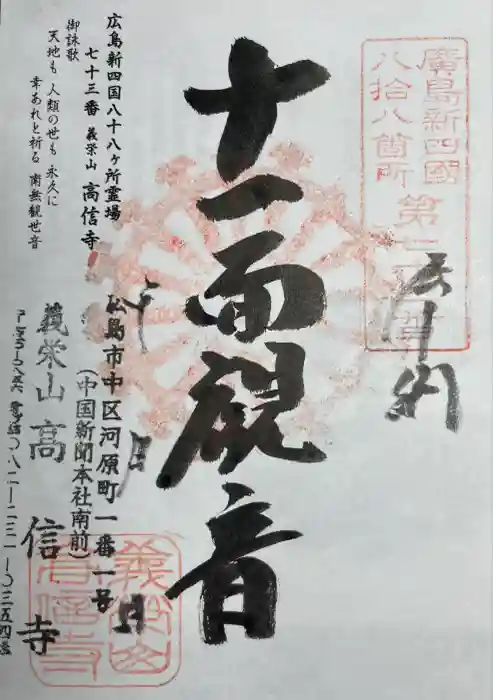 廣島新四國
八拾八箇所
第七
十一面観音
広島新四国八十八ヶ所霊場
七十三番 義栄山 高信寺
御詠歌
天地も 人類の世も 永久に
幸あれと祈る 南無観世音
広島市中区河原町一番一号
(中国新聞本社南前)
義栄山 高信寺
電話〇八二―二三一―〇三五四番
月
日